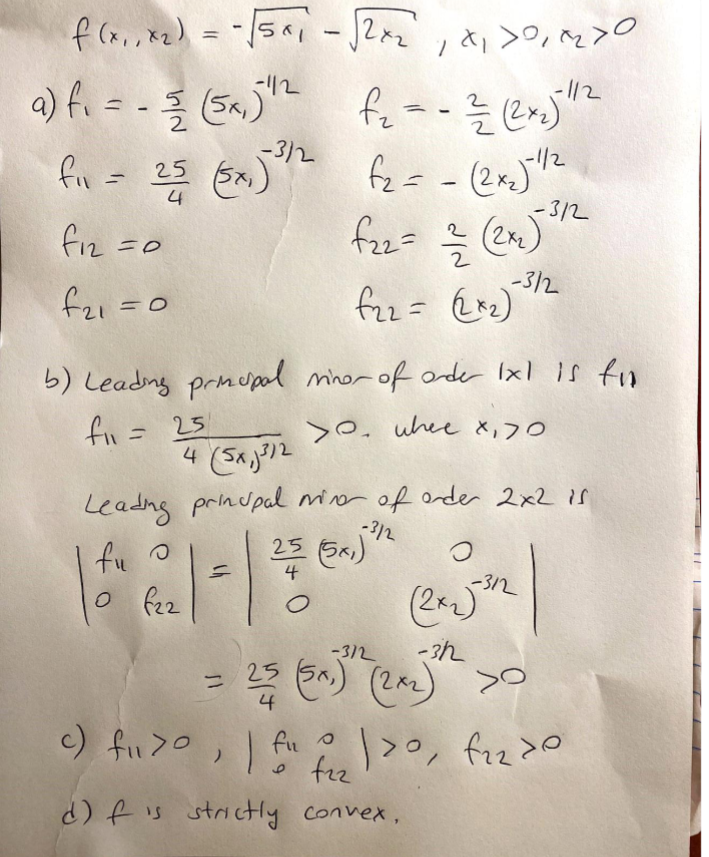 f(x₁,x₂) = -√5x₁ - √2x₂ , x₁>0, x₂>0
a) f₁ = - 5/2 (5x₁)^-1/2 f₂ = - 2/2 (2x₂)^-1/2
f₁₁ = 25/4 (5x₁)^-3/2 f₂ = - (2x₂)^-1/2
f₁₂ = 0 f₂₂ = 2/2 (2x₂)^-3/2
f₂₁ = 0 f₂₂ = (2x₂)^-3/2
b) Leading principal minor of order 1x1 is f₁₁
f₁₁ = 25/4(5x₁)^3/2 >0. where x₁>0
Leading principal minor of order 2x2 is
| f₁₁ 0 | = | 25/4 (5x₁)^-3/2 0 |
| 0 f₂₂ | | 0 (2x₂)^-3/2 |
= 25/4 (5x₁)^-3/2 (2x₂)^-3/2 >0
c) f₁₁>0 , | f₁₁ 0 | >0, f₂₂>0
| 0 f₂₂ |
d) f is strictly convex.